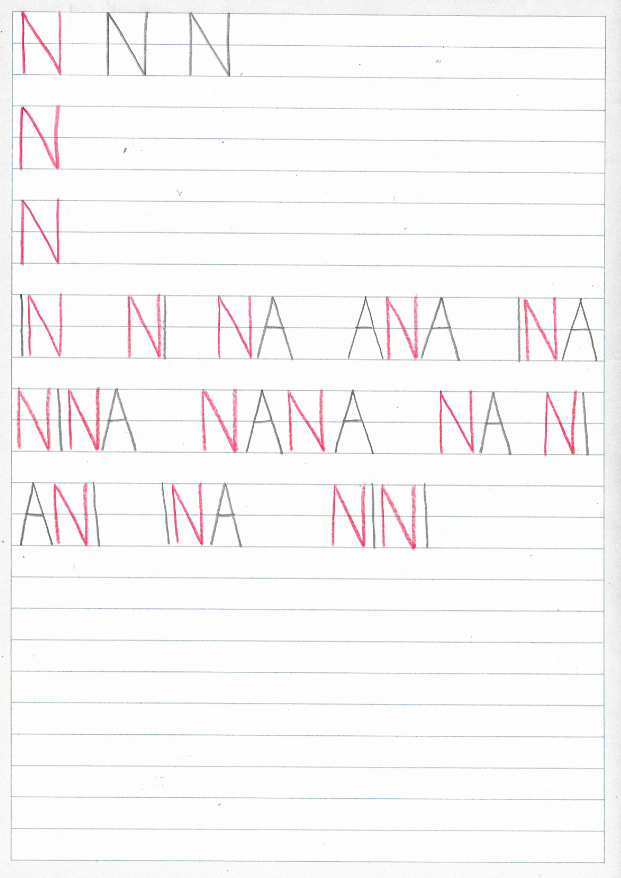 N N N
N
N
IN NI NA ANA INA
NINA NANA NA NI
ANI INA NINI